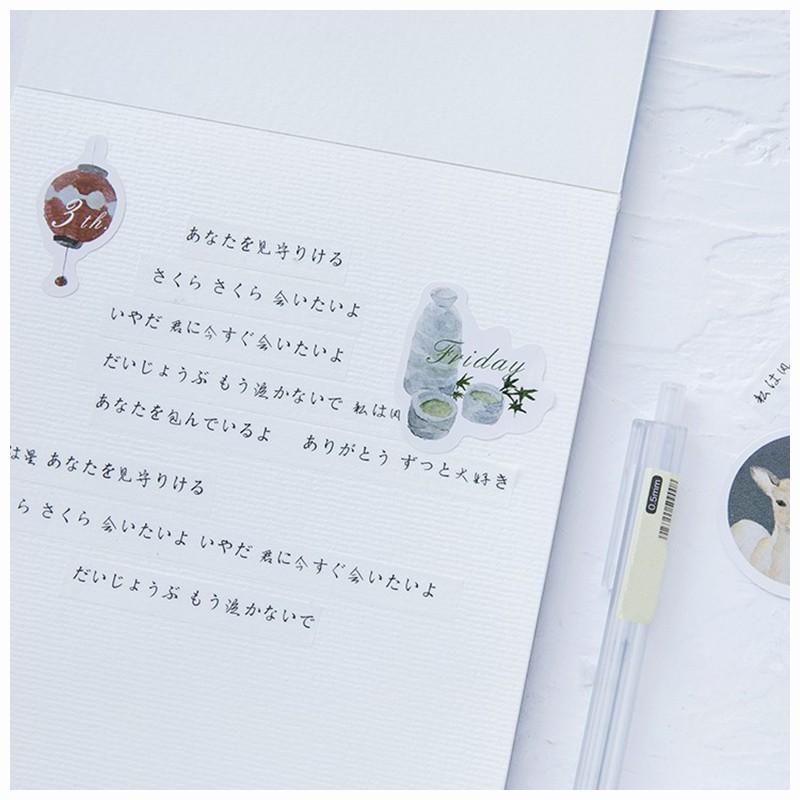 3th.
あなたを見守りける
さくら さくら 会いたいよ
いやだ 君に今すぐ会いたいよ
Friday
だいじょうぶ もう泣かないで 私は風
あなたを包んでいるよ ありがとう ずっと大好き
は星 あなたを見守りける
ら さくら 会いたいよ いやだ 君に今すぐ会いたいよ
だいじょうぶ もう泣かないで
0.5mm
私は風